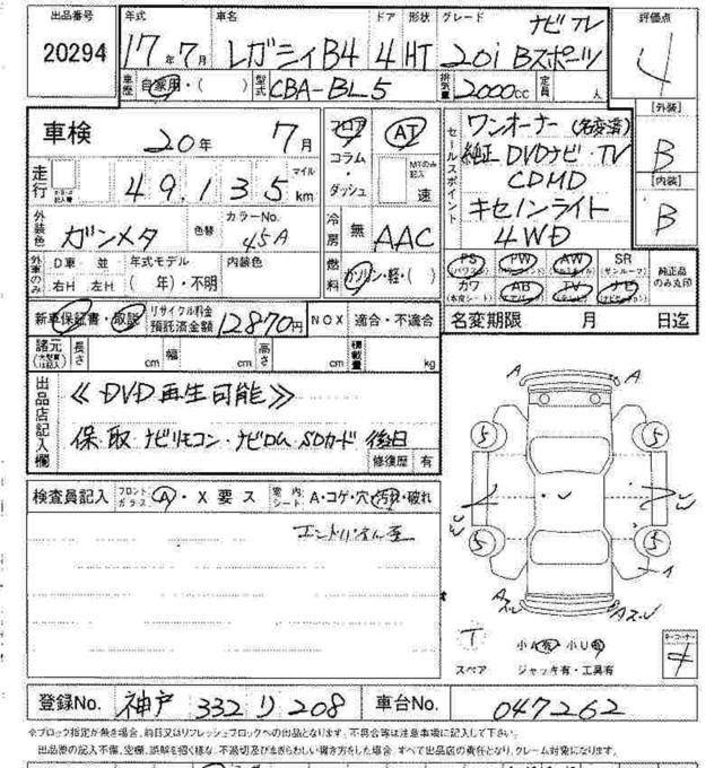 出品番号 年式 車名 ドア 形状 グレード ナビTV 評価点
20294 17年7月 レガシィB4 4 HT 20i Bスポーツ 4
車歴 自家用・( ) 型式 CBA-BL5 排気量 2000cc 定員 人
[外装]
B
[内装]
B
車検 20年 7月
フロア
コラム・ダッシュ
AT
MTのみ記入
速
セールスポイント
ワンオーナー (名変済)
純正DVDナビ・TV
CDMD
キセノンライト
4WD
走行 49,135 マイル km
外装色 ガンメタ 色替 カラーNo. 45A
冷房 無 AAC
外車のみ D車・並 年式モデル 内装色
右H 左H ( 年)・不明
燃料 ガソリン・軽・( )
PS PW AW SR
(パワステ) (サンルーフ)
カワ AB TV ナビ
(本皮シート) (エアバッグ) (テレビ) (ナビゲーション)
純正品のみ丸印
新車保証書・取説 リサイクル料金預託済金額 12870円 NOX 適合・不適合
名変期限 月 日迄
諸元 長さ cm 幅 cm 高さ cm 積載量 kg
出品店記入欄
≪DVD再生可能≫
保、取、ナビリモコン・ナビロム SDカード 後日
修復歴 有
検査員記入 フロントガラス A・X 要ス 室内シート A・コゲ・穴・汚れ・破れ
A A
5 5
5 5
A
T
スペア
小A 小U
ジャッキ有・工具有
登録No. 神戸 332 り 208 車台No. 047262
※ブロック指定が無き場合、前日又はリフレッシュブロックへの出品となります。不具合等は注意事項に記入して下さい。
出品票の記入不備、空欄、誤解を招く様な、不適切及びまぎらわしい書き方をした場合、すべて出品店の責任となり、クレーム対象になります。